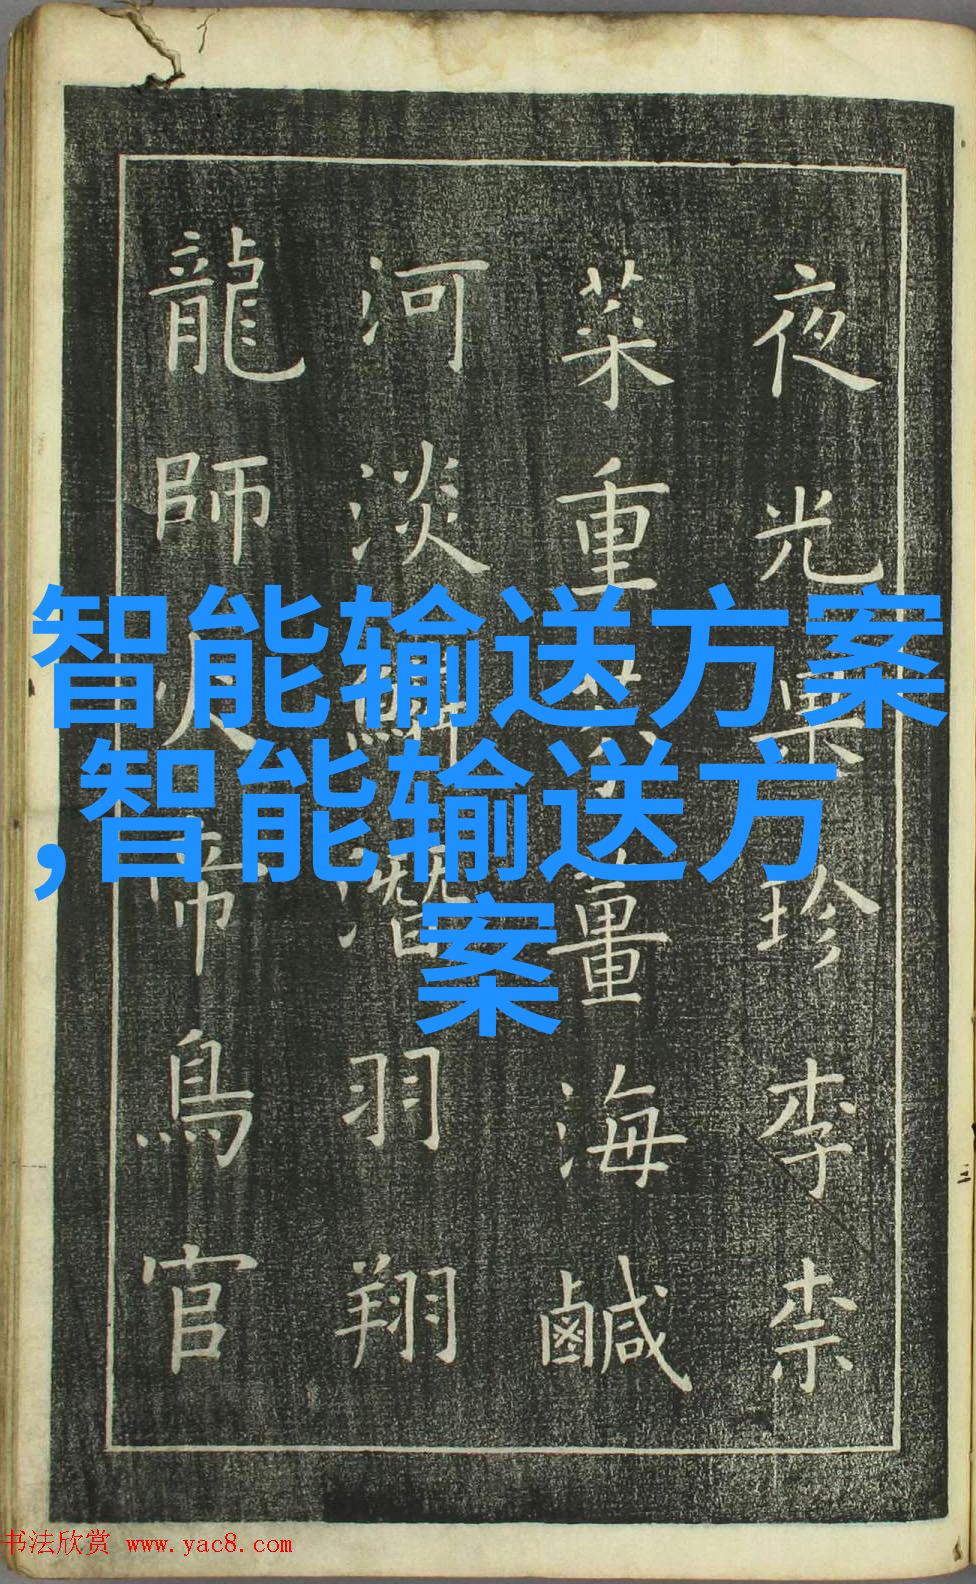 夜光果珍李柰
菜重薑海鹹
河淡鱗潛羽翔
龍師火帝鳥官
智能输送方案
,智能输送方
案
书法欣赏 www.yac8.com